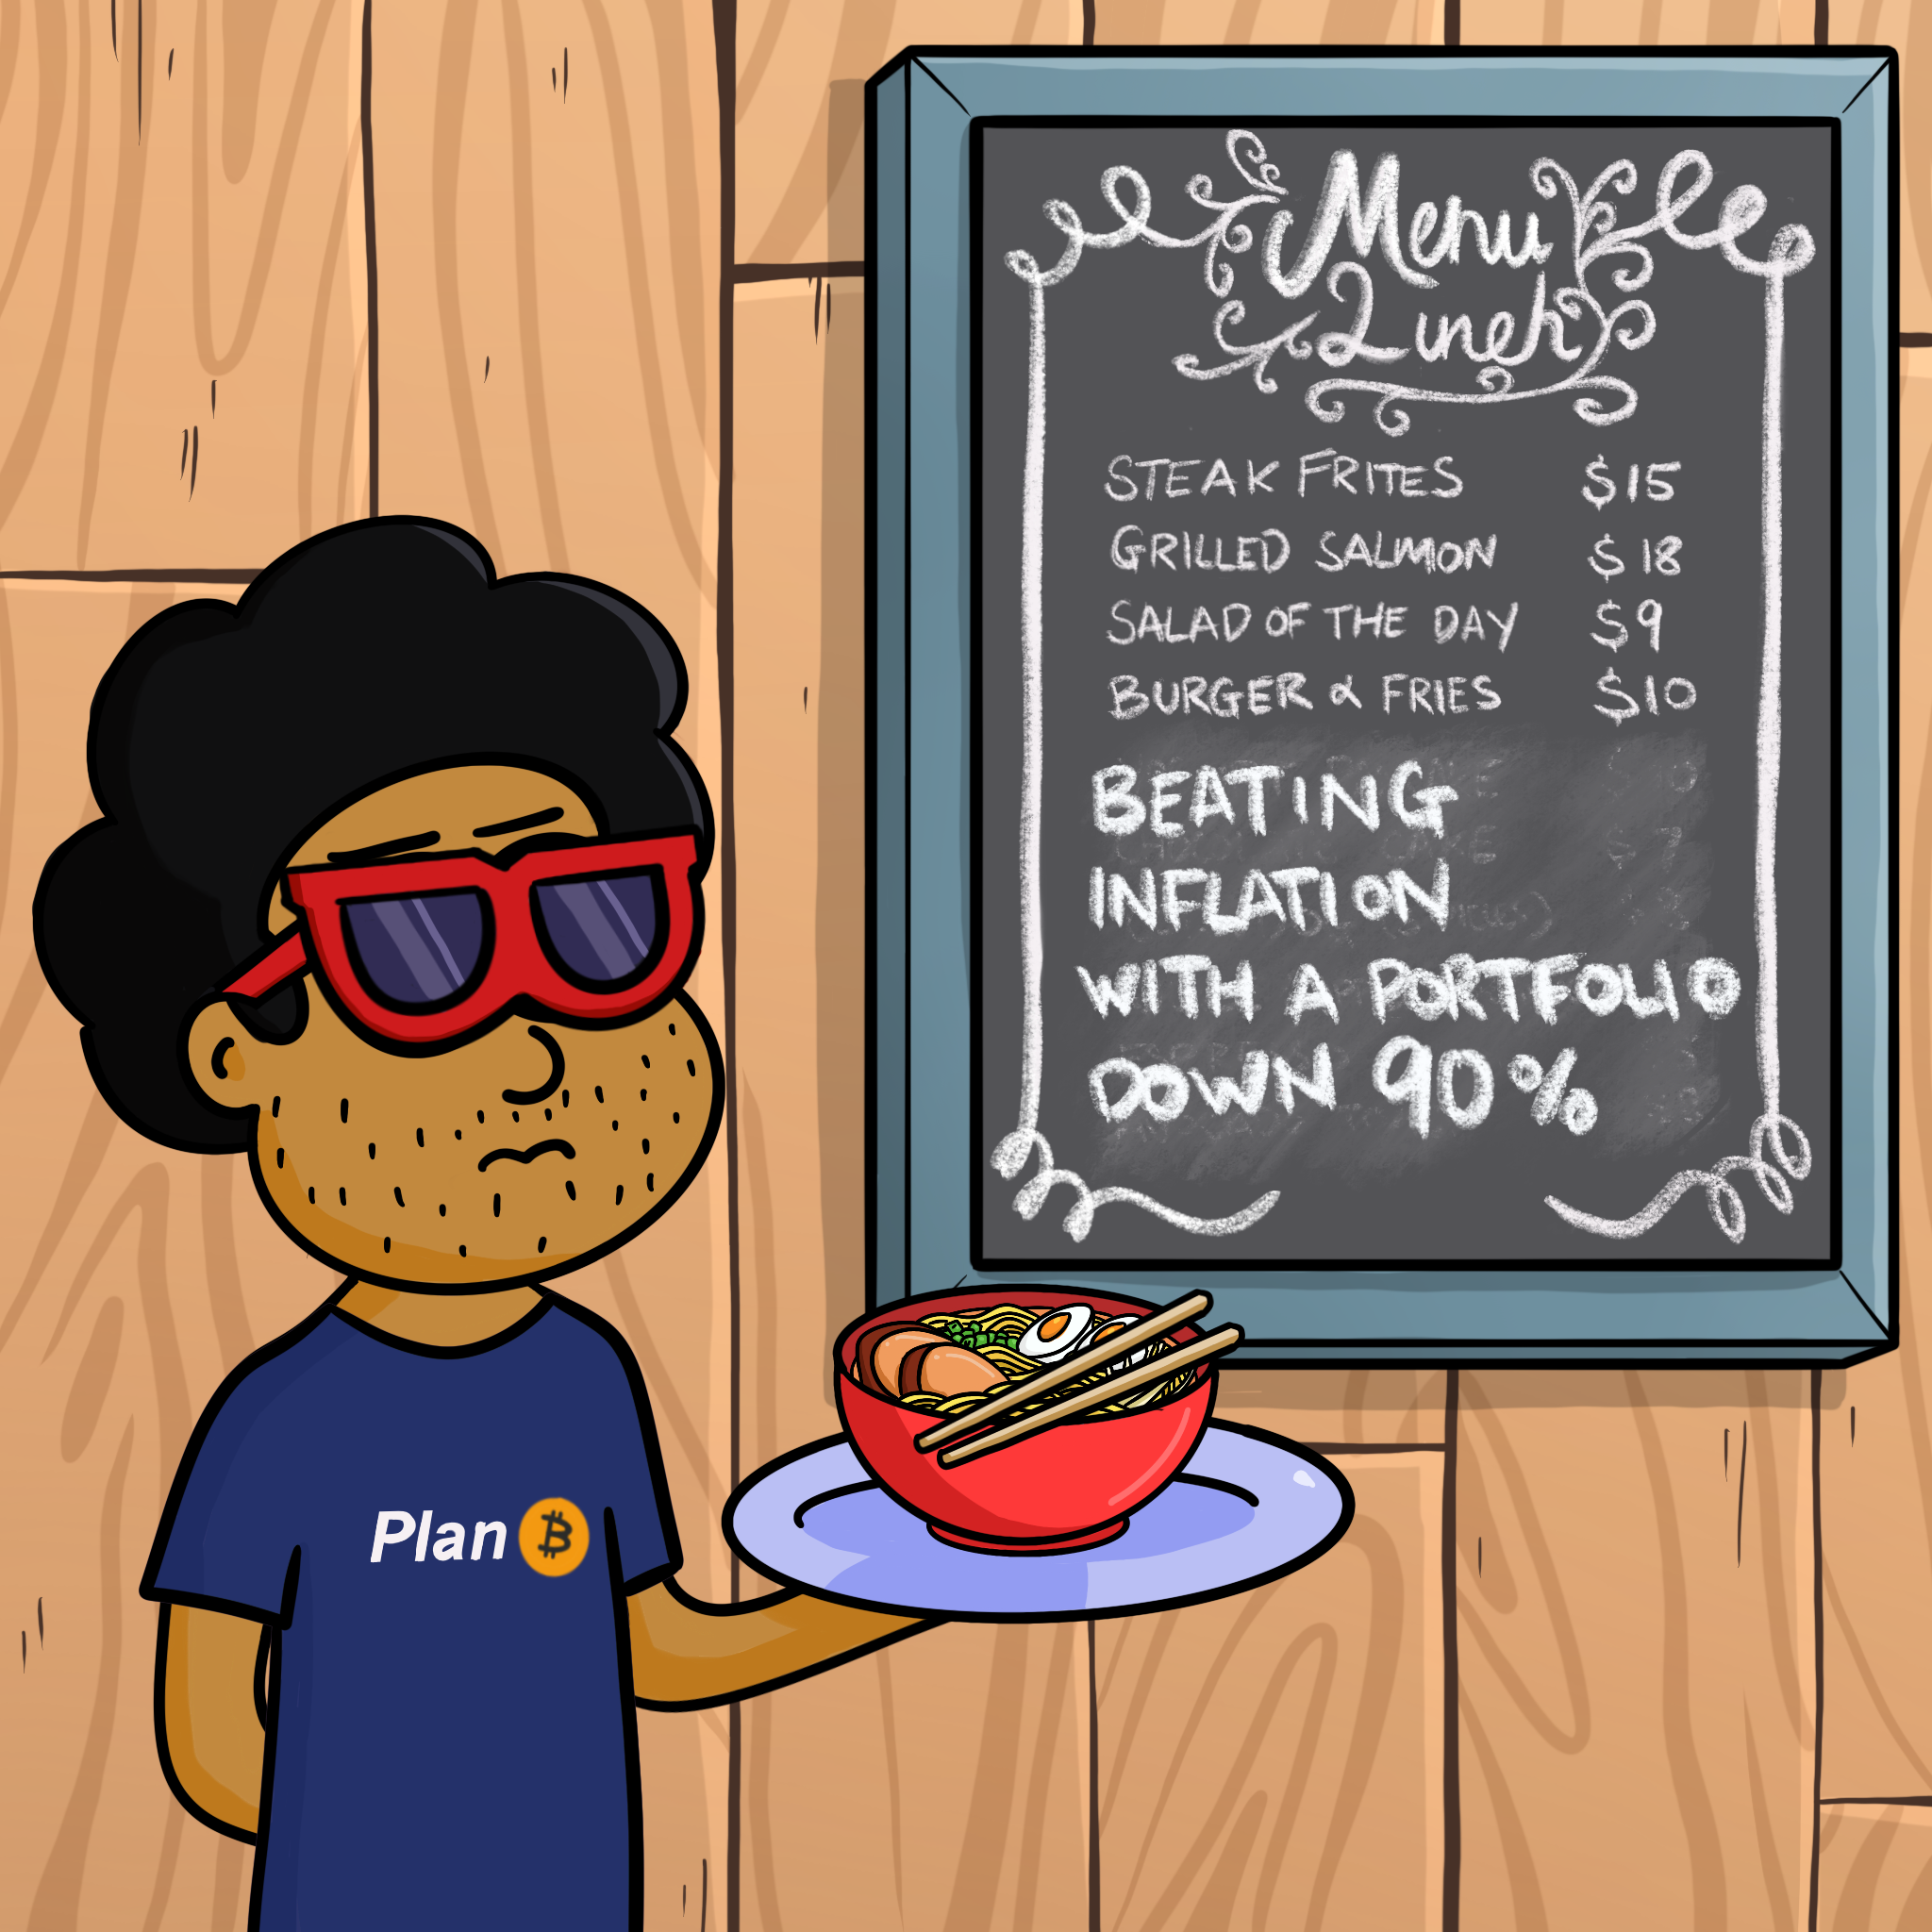 Menu
Lunch
STEAK FRITES $15
GRILLED SALMON $18
SALAD OF THE DAY $9
BURGER & FRIES $10
BEATING
INFLATION
WITH A PORTFOLIO
DOWN 90%
Plan ₿